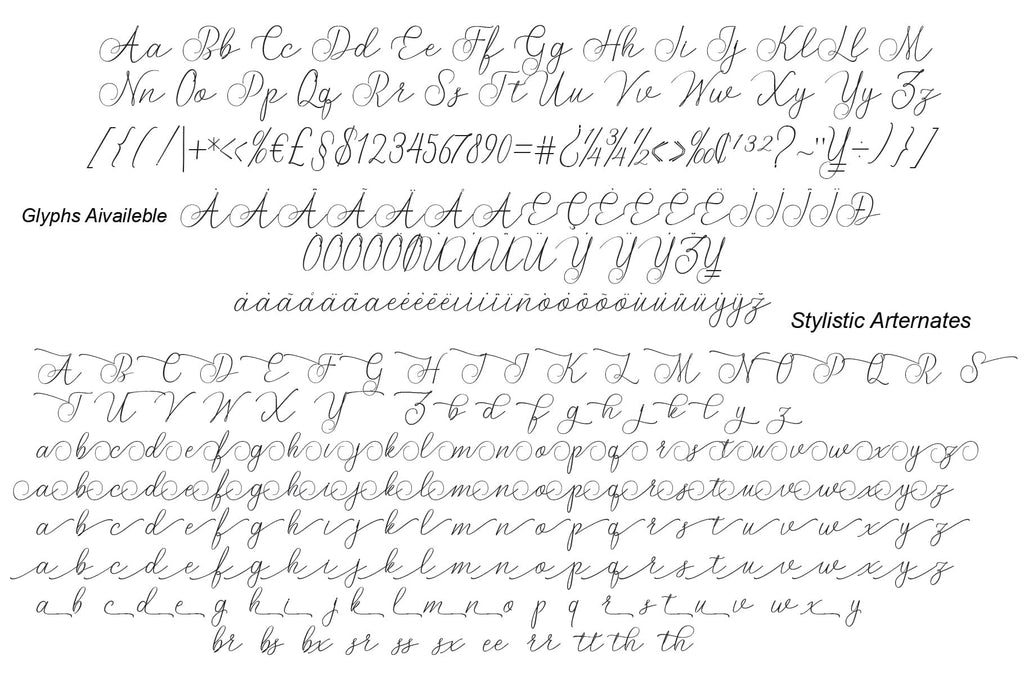 Aa Bb Cc Dd Ee Ff Gg Hh Iı Jj Kk Ll M
Nn Oo Pp Qq Rr Ss Tt Uu Vv Ww Xy Yy Zz
[{(/|+*<<%€£§$1234567890=#¿¼¾½<>‰¢¹³²?~"¥÷)}]
Glyphs Aivaileble
Stylistic Arternates
A B C D E F G H I J K L M N O P Q R S
T U V W X Y Z b d f g h j k l y z
a b c d e f g h ı j k l m n o p q r s t u v w x y z
a b c d e f g h ı j k l m n o p q r s t u v w x y z
a b c d e f g h ı j k l m n o p q r s t u v w x y z
a b c d e f g h ı j k l m n o p q r s t u v w x y z
a b c d e g h i j k l m n o p q r s t u v w x y
br bs bx sr ss sx ee rr tt th th